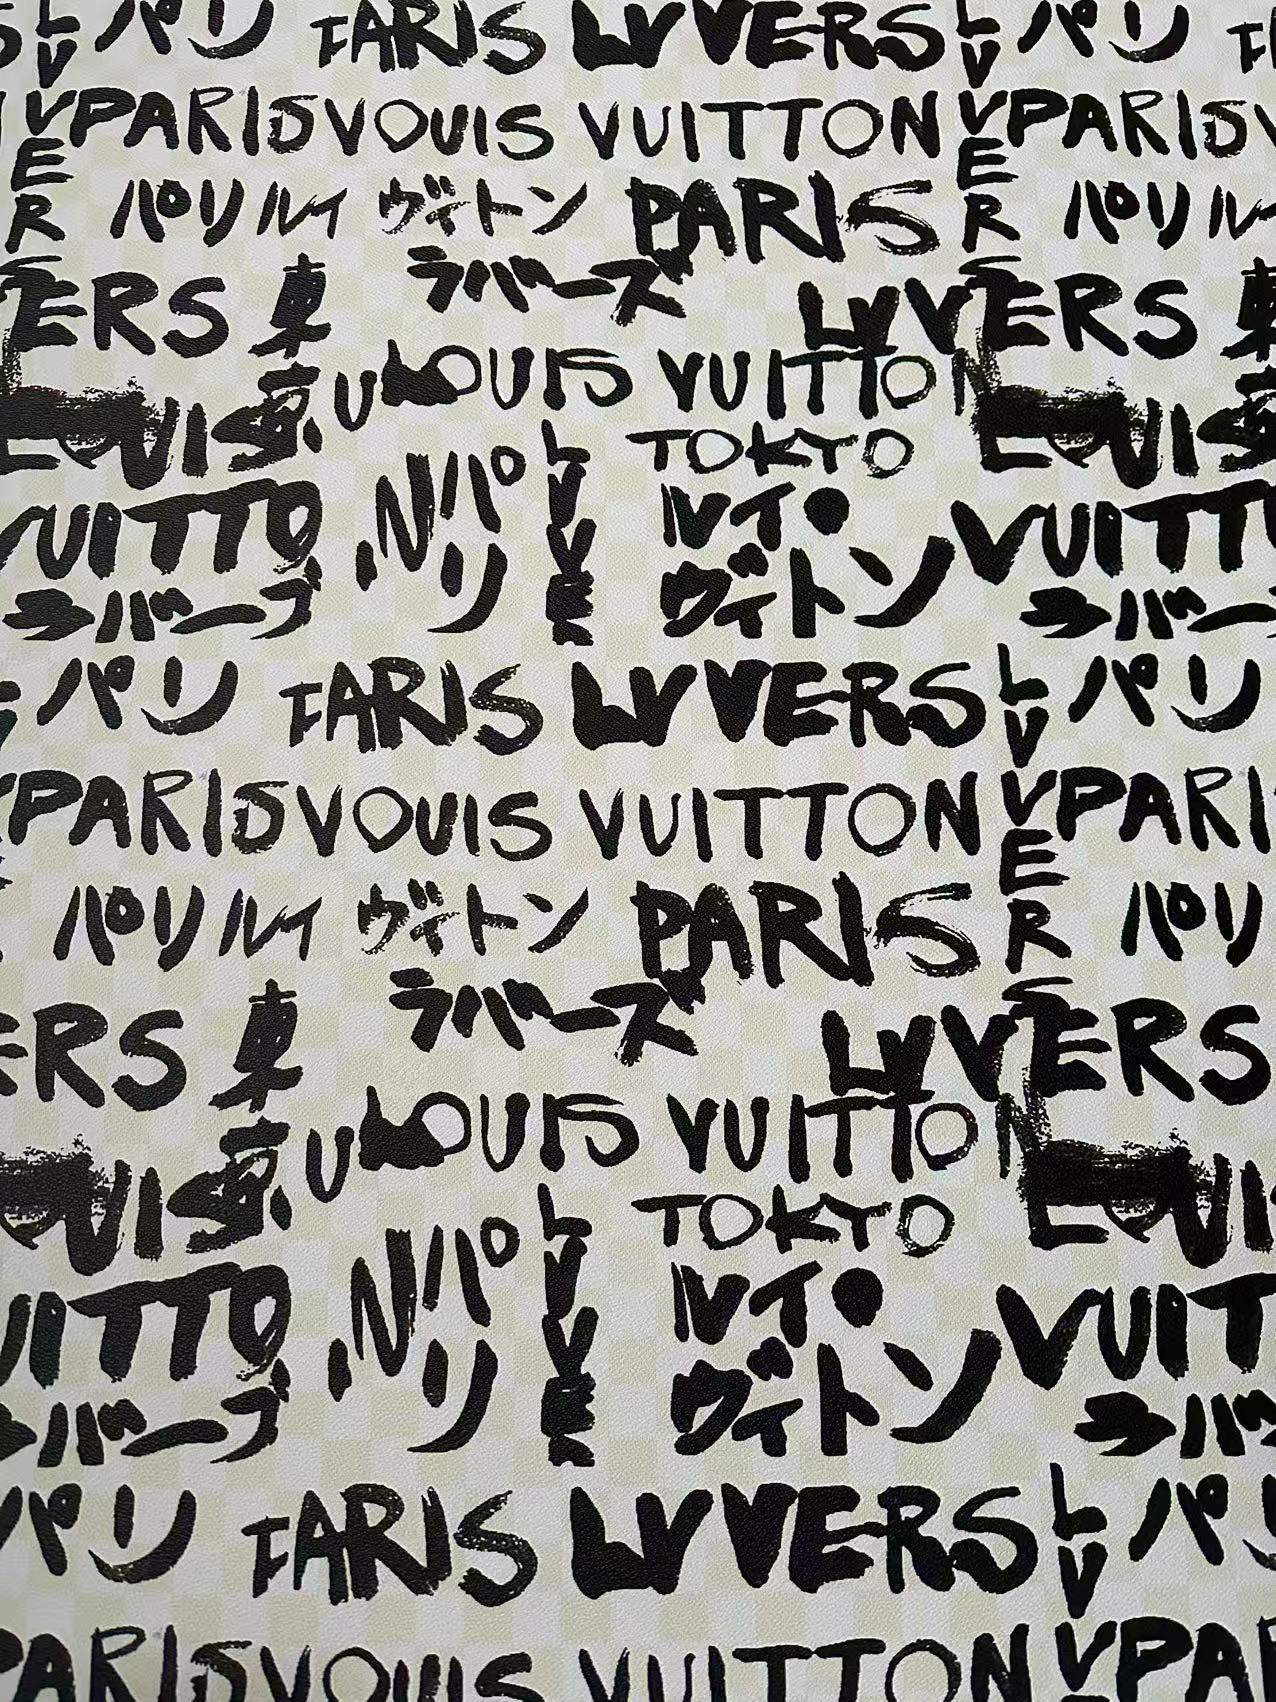 パリ PARIS LVVERS LV パリ
VPARIS VOUIS VUITTON VPARIS
VERS
パリ ルイ ヴィトン PARIS パリ
ラバーズ
ERS 東 LVVERS 東
京 LOUIS VUITTON
LOUIS TOKYO LOUIS
パリ LVVE ルイ・
VUITTO VUITT
ヴィトン
ラバーズ ラバー
パリ PARIS LVVERS LV パリ
VPARIS VOUIS VUITTON VPARI
VERS
パリ ルイ ヴィトン PARIS パリ
ラバーズ
ERS 東 LVVERS
京 LOUIS VUITTON
OUIS TOKYO LOUI
パリ LVVE ルイ・
UITTO VUIT
ヴィトン
バーズ ラバ
パリ PARIS LVVERS LV パリ
PARIS VOUIS VUITTON VPAR